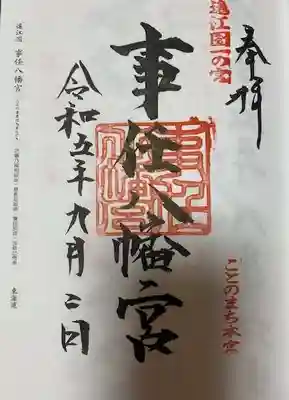 奉拝
遠江国一の宮
事任八幡宮
ことのまち本宮
令和五年九月二日
遠江国 事任八幡宮
東海道